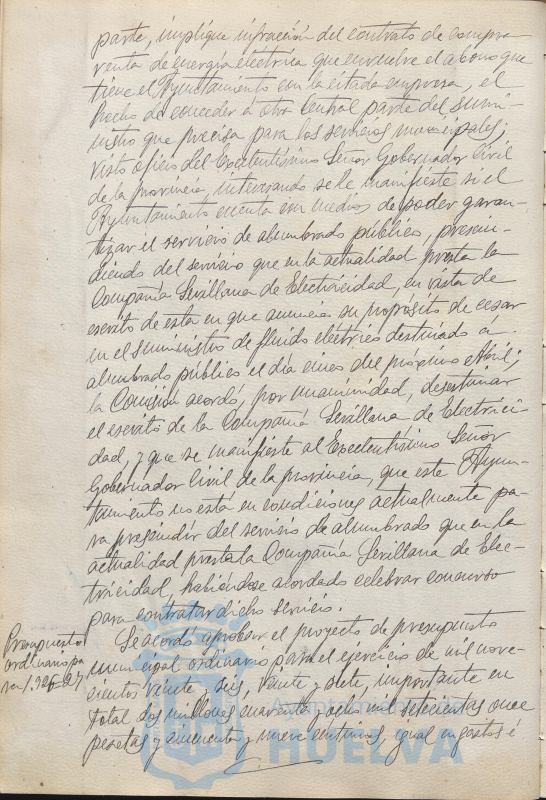 parte, implique infracción del contrato de compra
venta de energía eléctrica que envuelve el abono que
tiene el Ayuntamiento con la citada empresa, el
hecho de conceder á otra Central parte del sumi-
nistro que precisa para los servicios municipales;
visto oficio del Excelentísimo Señor Gobernador Civil
de la provincia, interesando se le manifieste si el
Ayuntamiento cuenta con medios de poder garan-
tizar el servicio de alumbrado público, prescin-
diendo del servicio que en la actualidad presta la
Compañía Sevillana de Electricidad, en vista de
escrito de esta en que anuncia su propósito de cesar
en el suministro de fluido electrico destinado a
alumbrado público el día cinco del próximo Abril;
la Comisión acordó, por unanimidad, desestimar
el escrito de la Compañía Sevillana de Electrici-
dad, y que se manifieste al Excelentísimo Señor
Gobernador Civil de la provincia, que este Ayun-
tamiento no está en condiciones actualmente pa-
ra prescindir del servicio de alumbrado que en la
actualidad presta la Compañía Sevillana de Elec-
tricidad, habiéndose acordado celebrar concurso
para contratar dicho servicio.
Presupuesto
ordinario pa
ra 1.926-27
Se acordó aprobar el proyecto de presupuesto
municipal ordinario para el ejercicio de mil nove-
cientos veinte y seis, veinte y siete, importante en
total dos millones cuarenta y ocho mil setecientas once
pesetas y cuarenta y nueve centimos, igual en gastos é
Ayuntamiento de
HUELVA